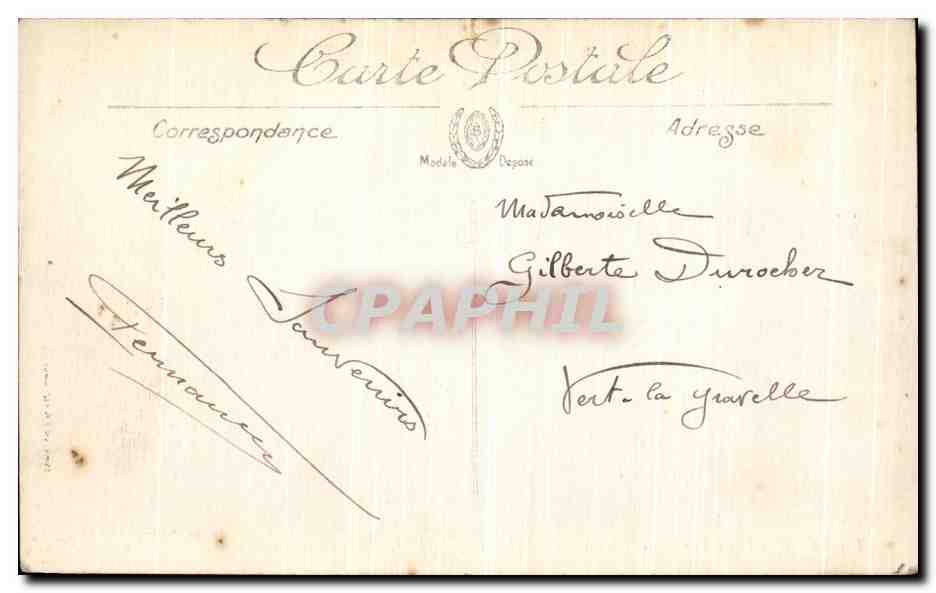 Carte Postale
Correspondance
Adresse
Modèle Déposé
Meilleurs
Souvenirs
Madamoiselle
Gilberte Durocher
Vert-la gravelle
CPAPHIL